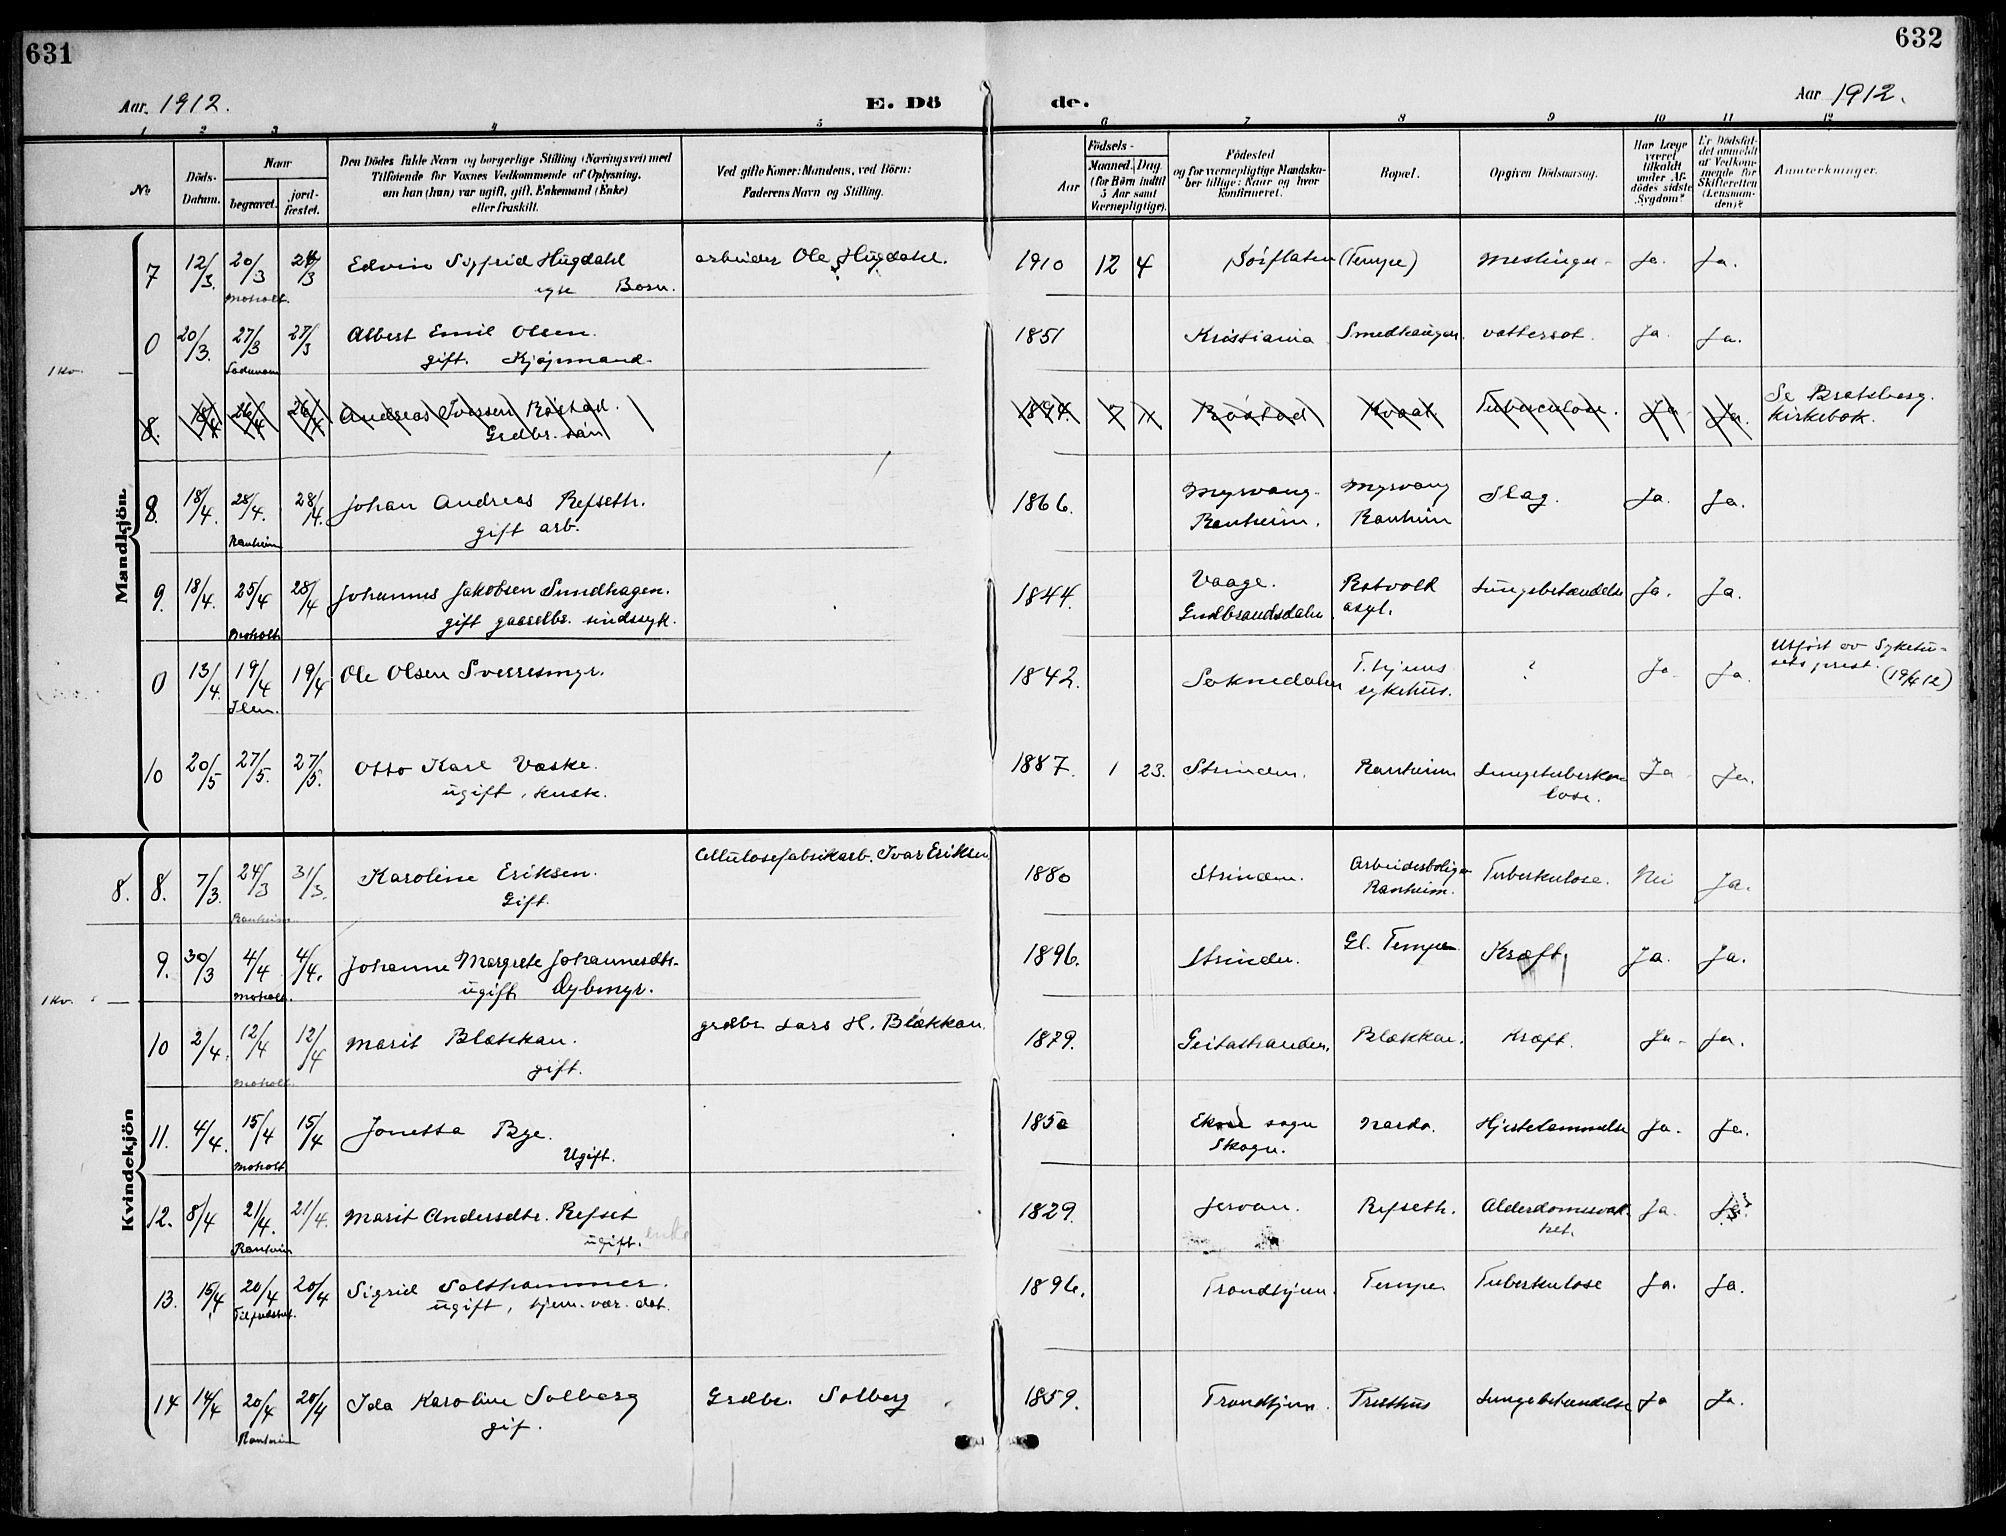 631
632
Aar. 1912.
E. Dö
de.
Aar 1912.
1 2 3 4 5 6 7 8 9 10 11 12
No
Döds-
Datum.
Naar
begravet.
jord-
fæstet.
Den Dödes fulde Navn og borgerlige Stilling (Næringsvei) med
Tilføiende for Voxnes Vedkommende af Oplysning,
om han (hun) var ugift, gift, Enkemand (Enke)
eller fraskilt.
Ved gifte Koner: Mandens, ved Börn:
Faderens Navn og Stilling.
Födsels-
Aar
Maaned.
Dag
(for Börn indtil
5 Aar samt
Værnepligtige).
Födested
og for værnepligtige Mandska-
ber tillige: Naar og hvor
konfirmeret.
Bopæl.
Opgiven Dödsaarsag.
Har Læge
været
tilkaldt
under Af-
dödes sidste
Sygdom?
Er Dödsfal-
det anmeldt
af Vedkom-
mende for
Skifteretten
(Lensman-
den)?
Anmærkninger.
Mandkjön.
7 12/3. 20/3 Moholt. 24/3 Edvin Sigfrid Hugdahl arbeider Ole Hugdahl. 1910 12 4 Sørflaten (Tempe) Meslinger Ja. Ja.
egte Barn.
1 kv.
0 20/3. 27/3 27/3 Albert Emil Olsen. 1851 Kristiania Smedhaugen. vattersot. Ja. Ja.
gift. Kjøpmand.
8. 18/4 26/4 26/4 Andreas Iversen Røstad. 1894. 7 11 Røstad Kvaal. Tuberculose. Ja Ja. Se Bratsberg
Grdbr. søn kirkebok.
8. 18/4. 28/4. Ranheim 28/4. Johan Andreas Refseth. 1866. Myrvang Ranheim. Myrvang Ranheim Slag. Ja. Ja.
gift arb.
9. 18/4. 25/4 Moholt 28/4 Johannes Jakobsen Sundhagen. 1844. Vaage. Gudbrandsdalen. Rotvold asyl. Lungebetændelse Ja. Ja.
gift gaardbr. sindssyk.
0 13/4. 19/4 Ilen. 19/4 Ole Olsen Sverresmyr. 1842. Soknedalen T.hjems sykehus. ? Ja Ja. Utført av Sykehu-
sets prest. (19/4 12)
10 20/5 27/5. 27/5. Otto Karl Væske. 1887. 1 23. Strinden. Ranheim Lungetuberku-
lose. Ja Ja.
ugift, kusk.
Kvindekjön
8. 8. 7/3. 24/3 Ranheim. 31/3. Karoline Eriksen. Cellulosefabrikarb. Ivar Eriksen 1880 Strinden. Arbeiderboliger Ranheim. Tuberkulose. Nei Ja.
Gift.
9. 30/3 4/4 Moholt. 4/4. Johanne Margrete Johannesdtr. 1896. Strinden. Gl. Tempe Kræft. Ja. Ja.
ugift Dybmyr.
1 kv.
10 2/4. 12/4 Moholt. 12/4 Marit Blækkan. grdbr. Lars H. Blækkan. 1879. Geitastranden. Blækkan. Kræft. Ja. Ja.
gift.
11. 4/4. 15/4 Moholt 15/4 Jonetta Bye. 1850 sogn Skogn. Nardo. Hjertelammelse Ja. Ja.
Ugift.
12. 8/4 21/4. Ranheim 21/4. Marit Andersdtr. Refset 1829. Jervan. Refseth. Alderdomssvak-
het. Ja. Ja?
ugift. enke
13. 15/4 20/4 Tilfredshet. 20/4 Sigrid Salthammer. 1896. Trondhjem. Tempe Tuberkulose Ja. Ja.
ugift, hjem.vær. dat.
14 14/4 20/4 Ranheim 20/4 Ida Karoline Solberg Grdbr. Solberg 1859. Trondhjem. Presthus Lungebetændelse Ja Ja.
gif.